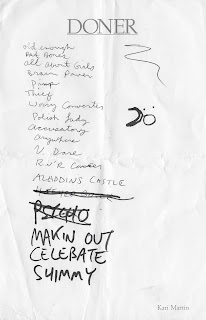 DONER
old enough
Bad Boner
all about Girls
Brain Power
Pimp
Thief
Worry Converter
Polish Lady
Accusatory
anywhere
U Dare
R.V.R
ALADDINS CASTLE
PSYCHO
MAKIN OUT
CELEBATE
SHIMMY
Kari Martin